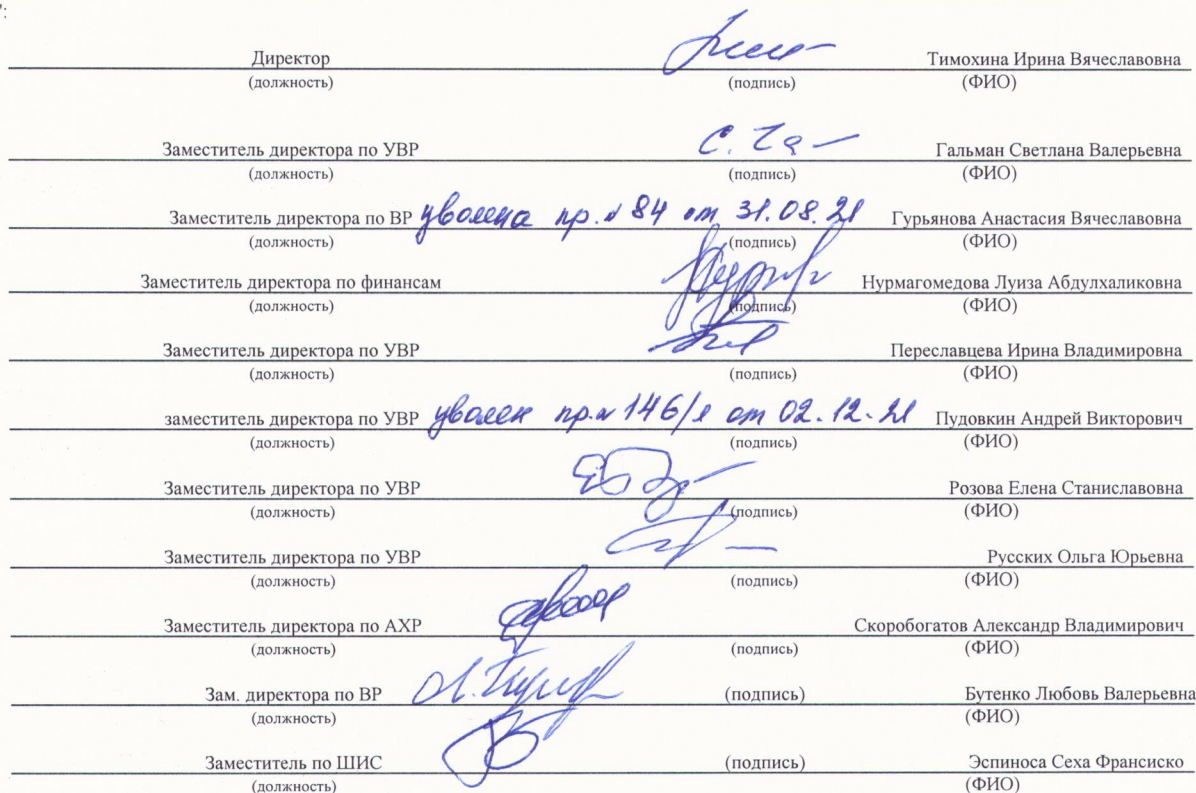 Директор Тимохина Ирина Вячеславовна
(должность) (подпись) (ФИО)
Заместитель директора по УВР Гальман Светлана Валерьевна
(должность) (подпись) (ФИО)
Заместитель директора по ВР уволена пр. № 84 от 31.08.21 Гурьянова Анастасия Вячеславовна
(должность) (подпись) (ФИО)
Заместитель директора по финансам Нурмагомедова Луиза Абдулхаликовна
(должность) (подпись) (ФИО)
Заместитель директора по УВР Переславцева Ирина Владимировна
(должность) (подпись) (ФИО)
заместитель директора по УВР уволен пр. № 146/л от 02.12.21 Пудовкин Андрей Викторович
(должность) (подпись) (ФИО)
Заместитель директора по УВР Розова Елена Станиславовна
(должность) (подпись) (ФИО)
Заместитель директора по УВР Русских Ольга Юрьевна
(должность) (подпись) (ФИО)
Заместитель директора по АХР Скоробогатов Александр Владимирович
(должность) (подпись) (ФИО)
Зам. директора по ВР (подпись) Бутенко Любовь Валерьевна
(должность) (ФИО)
Заместитель по ШИС (подпись) Эспиноса Сеха Франсиско
(должность) (ФИО)